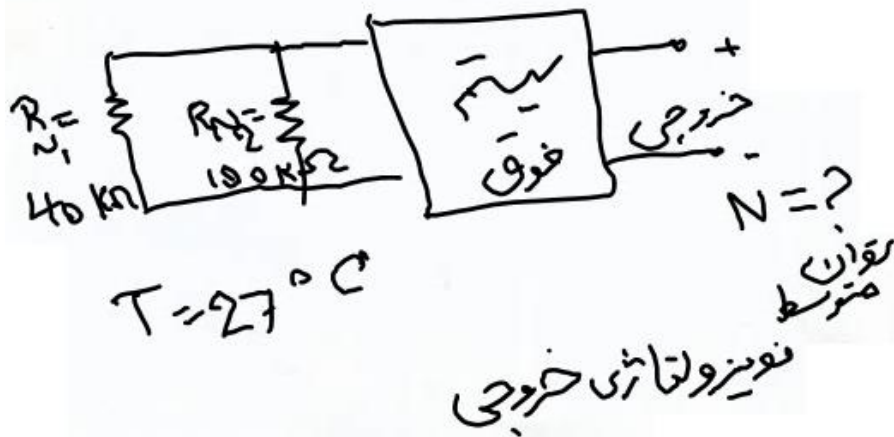 R_N1 = 40 KΩ
R_N2 = 100 KΩ
سیستم
فوق
+
خروجی
-
N = ?
توان
متوسط
T = 27° C
نویز ولتاژی خروجی